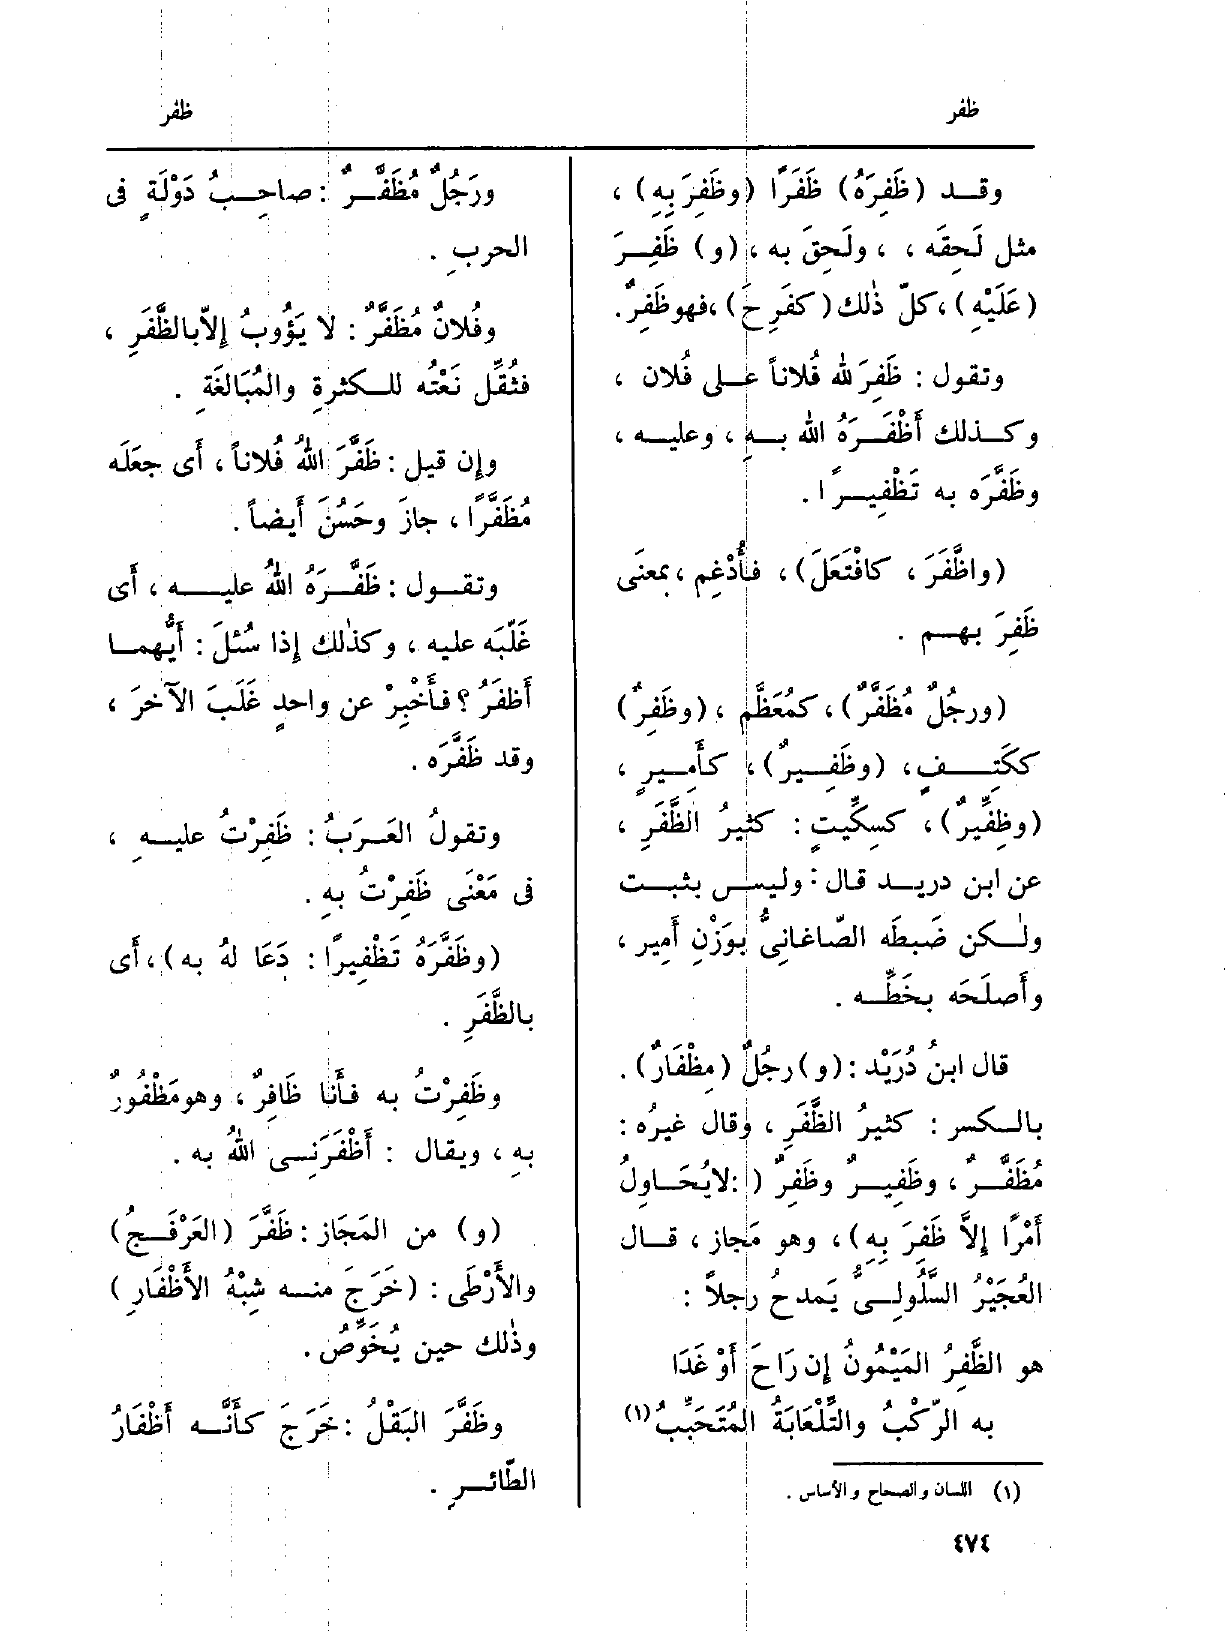 ظفر
ظفر
وقد (ظَفِرَهُ) ظَفَرًا (وظَفِرَ بِهِ) ،
مثل لَحِقَه ، ، ولَحِقَ به ، (و) ظَفِرَ
(عَلَيْهِ) ، كلّ ذٰلك (كفَرِحَ) ، فهو ظَفِرٌ.
وتقول : ظَفِرَ لله فُلاناً على فُلان ،
وكذلك أَظْفَرَهُ الله بهِ ، وعليه ،
وظَفَّرَه به تَظْفِيرًا .
(واظَّفَرَ ، كافْتَعَلَ) ، فأُدْغِم ، بمعنَى
ظَفِرَ بهم .
(ورجُلٌ مُظَفَّرٌ) ، كمُعَظَّم ، (وظَفِرٌ)
ككَتِفٍ ، (وظَفِيرٌ) ، كأَمِيرٍ ،
(وظِفِّيرٌ) ، كسِكِّيتٍ : كثيرُ الظَّفَرِ ،
عن ابن دريد قال : وليس بثبت
ولٰكن ضَبطَه الصّاغانِىُّ بوَزْنِ أَمِير ،
وأَصلَحَه بخَطِّه .
قال ابنُ دُرَيْد : (و) رجُلٌ (مِظْفَارٌ) .
بالكسر : كثيرُ الظَّفَرِ ، وقال غيرُه :
مُظَفَّرٌ ، وظَفِيرٌ وظَفِرٌ ( : لايُحَاوِلُ
أَمْرًا إِلاَّ ظَفِرَ بِهِ) ، وهو مَجاز ، قال
العُجَيْرُ السَّلُولِىُّ يَمدحُ رجلاً :
هو الظَّفِرُ المَيْمُونُ إن رَاحَ أَوْ غَدَا
به الرّكْبُ والتِّلْعَابَةُ المُتَحَبِّبُ (١)
(١) اللسان والصحاح والأساس .
ورَجُلٌ مُظَفَّرٌ : صاحِبُ دَوْلَةٍ فى
الحربِ .
وفُلانٌ مُظَفَّرٌ : لا يَؤُوبُ إِلاّ بالظَّفَرِ ،
فثُقِّل نَعْتُه للكثرةِ والمُبَالغَةِ .
وإن قيل : ظَفَّرَ اللهُ فُلاناً ، أَى جعلَه
مُظَفَّرًا ، جازَ وحَسُنَ أَيضاً .
وتقول : ظَفَّرَهُ اللهُ عليه ، أَى
غَلّبَه عليه ، وكذٰلك إذا سُئلَ : أَيُّهما
أَظفَرُ ؟ فأَخْبِرْ عن واحدٍ غَلَبَ الآخَرَ ،
وقد ظَفَّرَه .
وتقولُ العَرَبُ : ظَفِرْتُ عليهِ ،
فى مَعْنَى ظَفِرْتُ بهِ .
(وظَفَّرَهُ تَظْفِيرًا : دَعَا لهُ به) ، أَى
بالظَّفَرِ .
وظَفِرْتُ به فأَنا ظَافِرٌ ، وهو مَظْفُورٌ
بِهِ ، ويقال : أَظْفَرَنِى اللهُ به .
(و) من المَجَاز : ظَفَّرَ (العَرْفَجُ)
والأَرْطَى : (خَرَجَ منه شِبْهُ الأَظْفَارِ)
وذٰلك حين يُخَوِّصُ .
وظَفَّرَ البَقْلُ : خَرَجَ كأَنَّه أَظْفَارُ
الطّائرِ .
٤٧٤